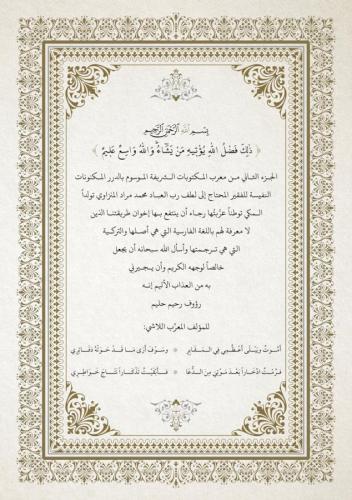 بِسْمِ اللهِ الرَّحْمٰنِ الرَّحِيْمِ
﴿ ذَلِكَ فَضْلُ اللهِ يُؤْتِيهِ مَنْ يَشَاءُ وَاللهُ وَاسِعٌ عَلِيمٌ ﴾
الجزء الثاني من معرب المكتوبات الشريفة الموسوم بالدرر المكنونات
النفيسة للفقير المحتاج إلى لطف رب العباد محمد مراد المنزاوي تولداً
المكي توطناً عرّبتُها رجاء أن ينتفع بها إخوان طريقتنا الذين
لا معرفة لهم باللغة الفارسية التي هي أصلها والتركية
التي هي ترجمتها وأسأل الله سبحانه أن يجعل
خالصاً لوجهه الكريم وأن يجيرني
به من العذاب الأليم إنه
رؤوف رحيم حليم
للمؤلف المعرّب اللاشي:
أَمُوتُ وَيَبْلَى أَعْظُمِي فِي الْمَقَابِرِ * وَسَوْفَ أَرَى مَا قَدْ حَوَتْهُ دَفَاتِرِي
فَرُمْتُ ادِّخَاراً بَعْدَ مَوْتِي مِنَ الدُّعَا * فَأَبْقَيْتُ تَذْكَاراً نَتَاجَ خَوَاطِرِي